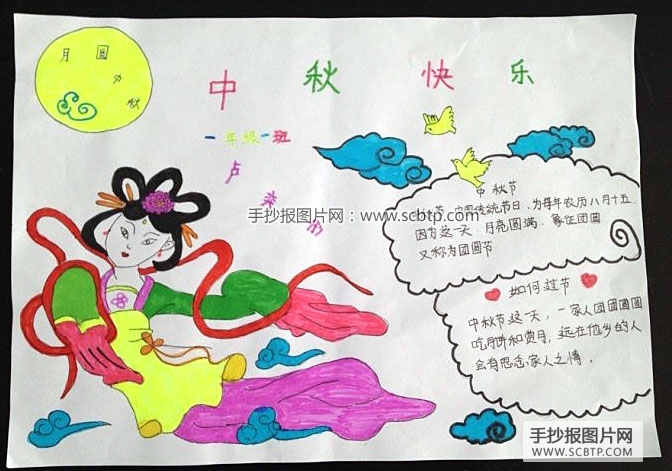 月圆中秋
中秋快乐
一年级一班
手抄报图片网:www.scbtp.com
中秋节
中国传统节日,为每年农历八月十五
因为这一天,月亮圆满,象征团圆
又称为团圆节
如何过节
中秋节这一天,一家人团团圆圆
吃月饼和赏月,远在他乡的人
会有思念家人之情。
手抄报图片网
WWW.SCBTP.COM